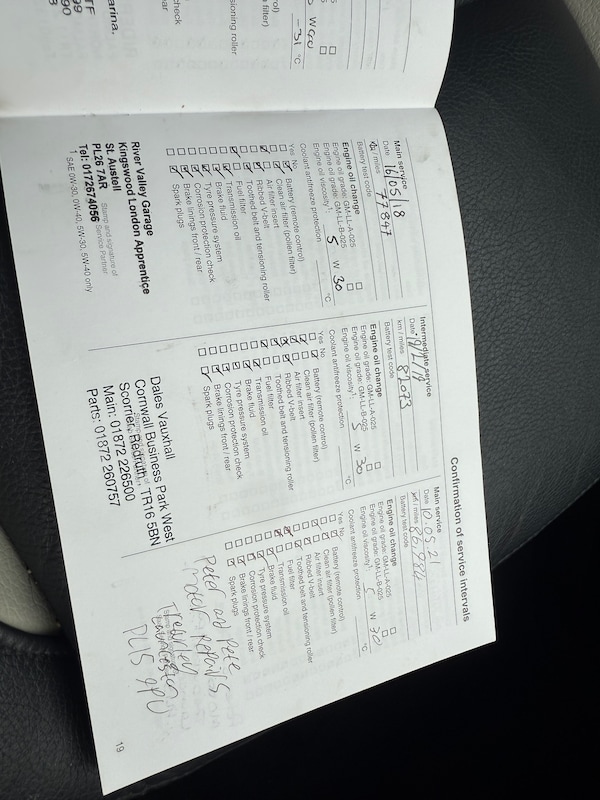 Confirmation of service intervals
Main service
Date 16/05/18
km / miles 77847
Battery test code
Engine oil change
Engine oil grade: GM-LL-A-025
Engine oil grade: GM-LL-B-025
Engine oil viscosity¹: 5 W 30
Coolant antifreeze protection °C
Yes No
Battery (remote control)
Clean air filter (pollen filter)
Air filter insert
Ribbed V-belt
Toothed belt and tensioning roller
Fuel filter
Transmission oil
Brake fluid
Tyre pressure system
Corrosion protection check
Brake linings front / rear
Spark plugs
River Valley Garage
Kingswood London Apprentice
St Austell
PL26 7AR
Tel: 0172674056
Stamp and signature of
Service Partner
¹ SAE 0W-30, 0W-40, 5W-30, 5W-40 only
Intermediate service
Date
km / miles 82073
Battery test code
Engine oil change
Engine oil grade: GM-LL-A-025
Engine oil grade: GM-LL-B-025
Engine oil viscosity¹: 5 W 30
Coolant antifreeze protection °C
Yes No
Battery (remote control)
Clean air filter (pollen filter)
Air filter insert
Ribbed V-belt
Toothed belt and tensioning roller
Fuel filter
Transmission oil
Brake fluid
Tyre pressure system
Corrosion protection check
Brake linings front / rear
Spark plugs
Dales Vauxhall
Cornwall Business Park West
Scorrier, Redruth, TR16 5BN
Main: 01872 226500
Parts: 01872 260757
Main service
Date 10.05.21
km / miles 86984
Battery test code
Engine oil change
Engine oil grade: GM-LL-A-025
Engine oil grade: GM-LL-B-025
Engine oil viscosity¹: 5 W 30
Coolant antifreeze protection °C
Yes No
Battery (remote control)
Clean air filter (pollen filter)
Air filter insert
Ribbed V-belt
Toothed belt and tensioning roller
Fuel filter
Transmission oil
Brake fluid
Tyre pressure system
Corrosion protection check
Brake linings front / rear
Spark plugs
Peter and Pete
Repairs
PL15 9PU
19